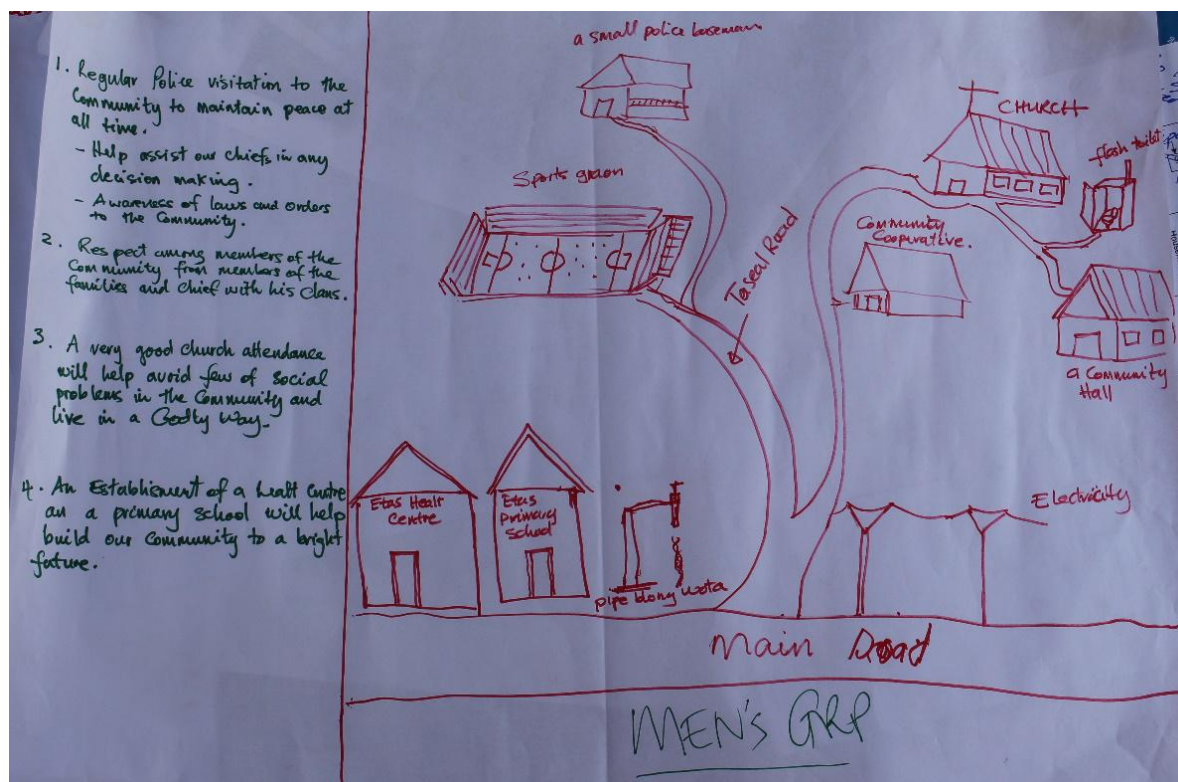 1. Regular Police visitation to the
Community to maintain peace at
all time.
- Help assist our chiefs in any
decision making.
- Awareness of laws and orders
to the Community.
2. Respect among members of the
Community from members of the
families and chief with his clans.
3. A very good church attendance
will help avoid few of social
problems in the Community and
live in a Godly Way.
4. An Establisment of a healt Centre
an a primary school will help
build our Community to a bright
future.
a small police
CHURCH
flash toilet
Sports
Community
Cooperative.
Road
a Community
Hall
Etas Healt
Centre
Etas
Primary
School
pipe blong wota
Electricity
Main Road
MEN'S GRP